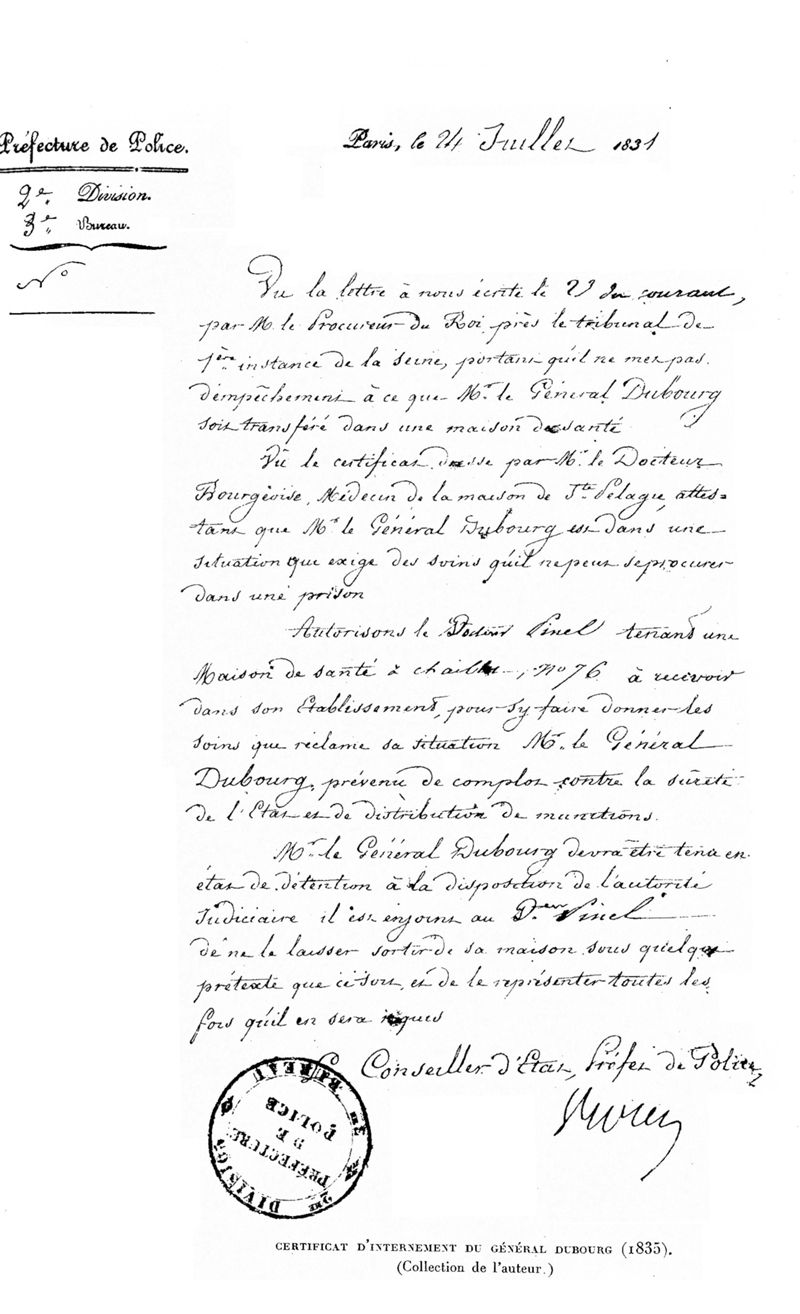 Préfecture de Police.
Paris, le 24 Juillet 1831
2e. Division.
3e. Bureau.
No
Vu la lettre à nous écrite le 23 du courant,
par M. le Procureur du Roi près le tribunal de
1ère instance de la Seine, portant qu'il ne met pas
d'empêchement à ce que Mr. le Général Dubourg
soit transféré dans une maison de santé
Vû le certificat dressé par Mr. le Docteur
Bourgeoise, Médecin de la maison de Ste Pélagie, attes=
tant que Mr. le Général Dubourg est dans une
situation que exige des soins qu'il ne peut se procurer
dans une prison
Autorisons le Docteur Pinel tenant une
Maison de santé à chaillot, No 76 à recevoir
dans son Etablissement, pour s'y faire donner les
soins que réclame sa situation Mr. le Général
Dubourg, prévenu de complot contre la sûreté
de l'Etat et de distribution de munitions.
Mr. le Général Dubourg devra être tenu en
état de détention à la disposition de l'autorité
Judiciaire il est enjoint au Deur Pinel
de ne le laisser sortir de sa maison sous quelque
prétexte que ce soit, et de le représenter toutes les
fois qu'il en sera requis
Le Conseiller d'Etat, Préfet de Police
PRÉFECTURE
DE
POLICE
2ME DIVISION
3E BUREAU
CERTIFICAT D'INTERNEMENT DU GÉNÉRAL DUBOURG (1835).
(Collection de l'auteur.)